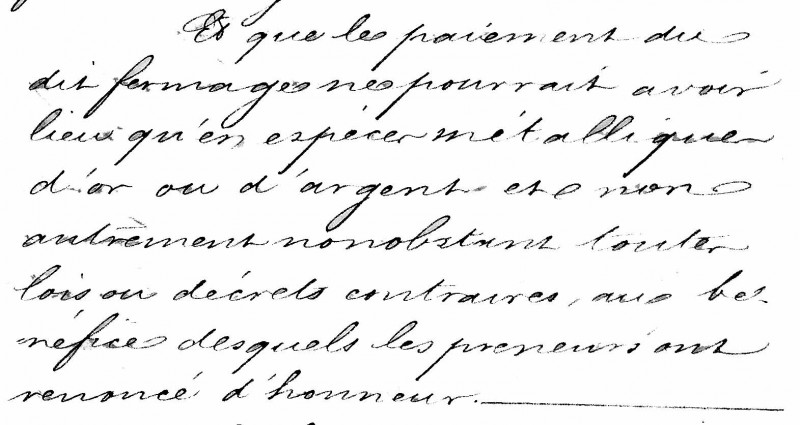 Et que le paiement du
dit fermage ne pourrait avoir
lieu qu'en espèces métalliques
d'or ou d'argent et non
autrement nonobstant toutes
lois ou décrets contraires, au bé-
néfice desquels les preneurs ont
renoncé d'honneur.